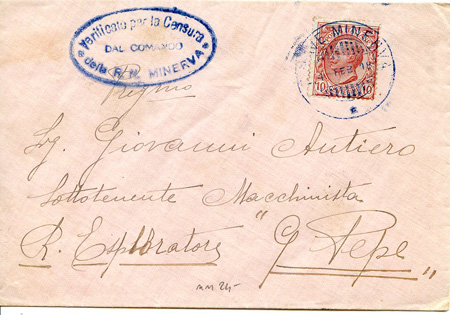 Verificato per la Censura
DAL COMANDO
della R. N. MINERVA
NAVE MINERVA
FEB 16
10 10
Regno
Sg. Giovanni Autiero
Sottotenente Macchinista
R. Esploratore "G Pepe"
MM 24-